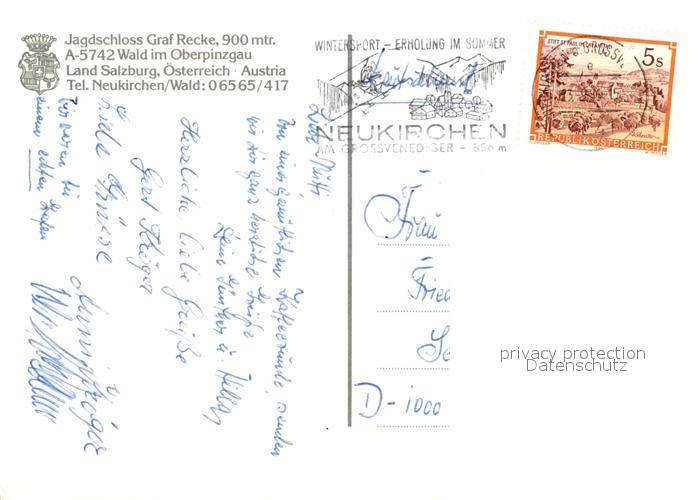 Jagdschloss Graf Recke, 900 mtr.
A-5742 Wald im Oberpinzgau
Land Salzburg, Österreich · Austria
Tel. Neukirchen/Wald: 0 65 65 / 417
WINTERSPORT – ERHOLUNG IM SOMMER
NEUKIRCHEN
AM GROSSVENEDIGER – 856 m
STIFT ST. PAUL IM LAVANTTAL
5 S
REPUBLIK ÖSTERREICH
Liebe Mutti,
von einer gemütlichen Kaffeerunde senden
wir dir ganz herzliche Grüße
Deine Günther u.
Herzliche liebe Grüße
Gert Kröger
Liebe Grüsse
Wir waren bei
einem echten Grafen
Frau
Fried
D-1000
privacy protection
Datenschutz